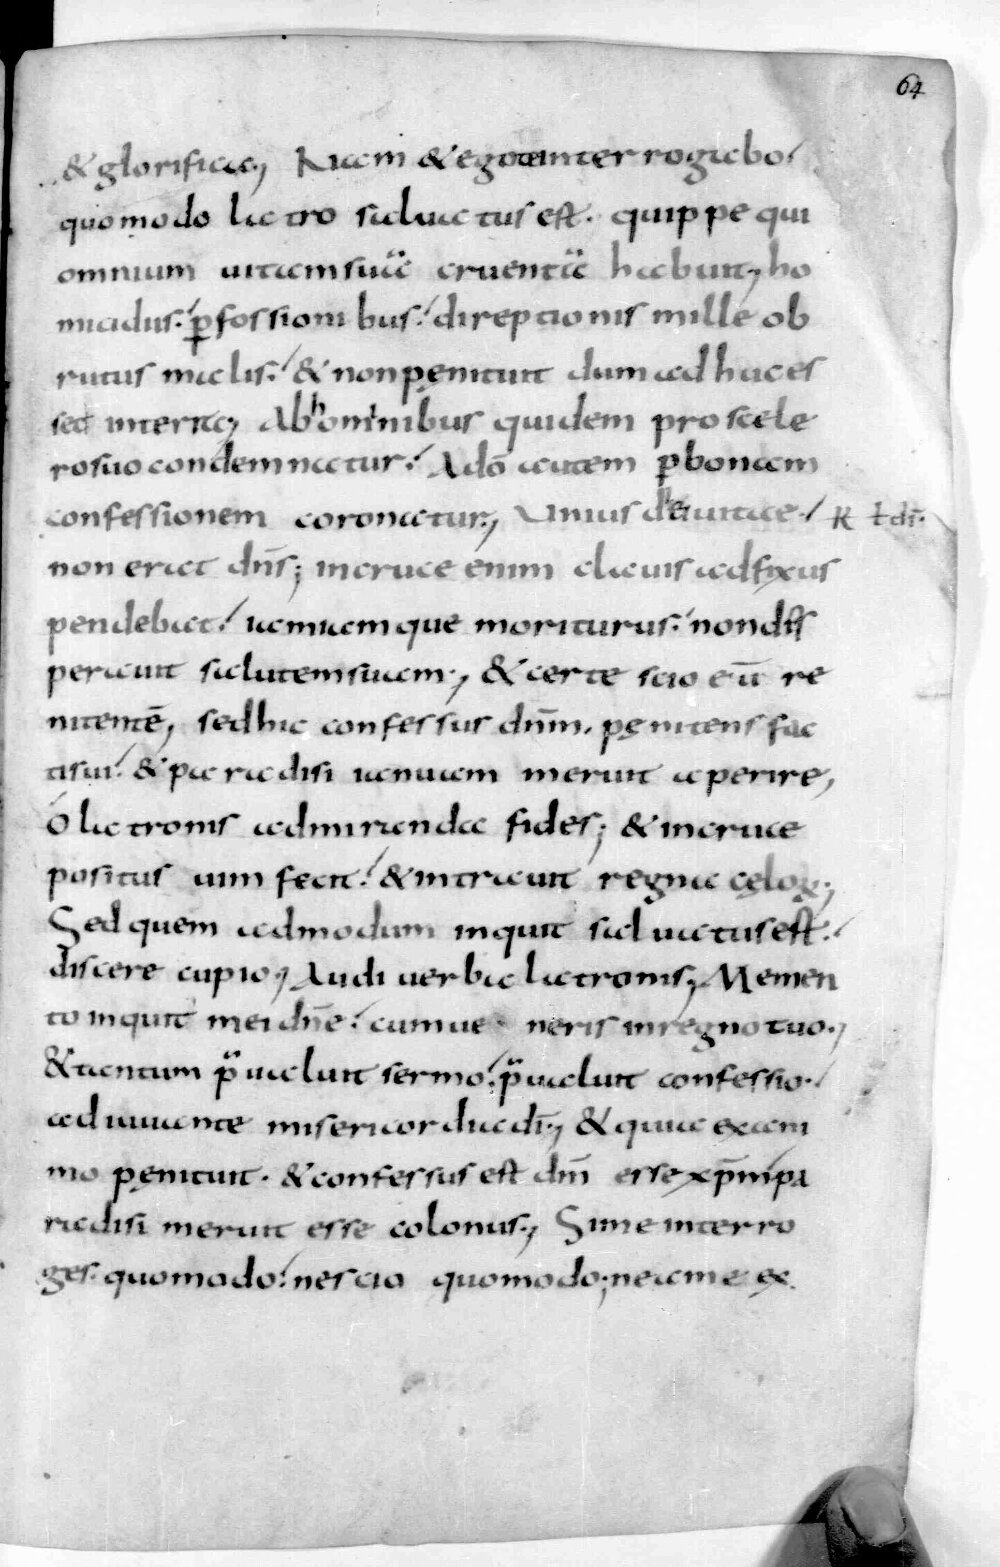 64
& glorifica; Nam & ego te interrogabo.
quomodo latro saluatus est. quippe qui
omnium uitam suā cruentā habuit; ho
micidiis. p̱fossionibus. direptionis mille ob
rutus malis. & non pęnituit dum adhuc es
set in terra; Abhominibus quidem pro scele
ro suo condemnatur. A dō autem p̱ bonam
confessionem coronatur; Unius uitae.
non erat dn̄s; in cruce enim clauis adfixus
pendebat. iamiamque moriturus. non dis
perauit salutem suam; & certe scio eū re
nitentē, sed hic confessus dn̄m. pęnitens fac
tis ui. & paradisi ianuam meruit aperire,
O latronis admiranda fides; & in cruce
positus uim fecit. & intrauit regna cęloꝝ;
Sed quem admodum inquit saluatus est.
discere cupio; Audi uerba latronis; Memen
to inquit mei dn̄e. cum ueneris in regno tuo;
& tantum p̄ualuit sermo. p̄ualuit confessio.
adiuuante misericordia dī; & quia ex ani
mo pęnituit. & confessus est dn̄m esse xp̄m pa
radisi meruit esse colonus; Si me interro
ges. quomodo. nescio quomodo; nea me ex